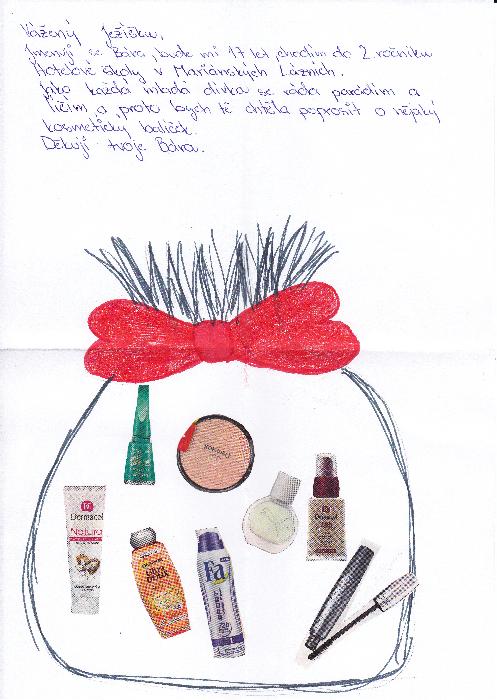 Vážený Ježíšku,
Jmenuji se Bára, bude mi 17 let, chodím do 2. ročníku
Hotelové školy v Mariánských Lázních.
Jako každá mladá dívka se ráda parádím a
líčím a proto bych tě chtěla poprosit o nějaký
kosmetický balíček.
Děkuji tvoje Bára.
Dermacol
Natura
Fa
SPORT